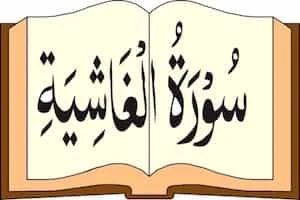 سُوْرَةُ الْغَاشِيَةِ